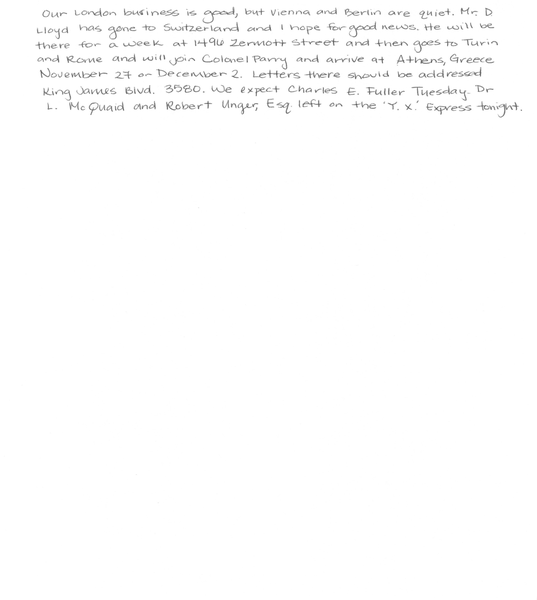 Our London business is good, but Vienna and Berlin are quiet. Mr. D
Lloyd has gone to Switzerland and I hope for good news. He will be
there for a week at 1496 Zermott Street and then goes to Turin
and Rome and will join Colonel Parry and arrive at Athens, Greece
November 27 or December 2. Letters there should be addressed
King James Blvd. 3580. We expect Charles E. Fuller Tuesday. Dr
L. McQuaid and Robert Unger, Esq. left on the 'Y. X.' Express tonight.